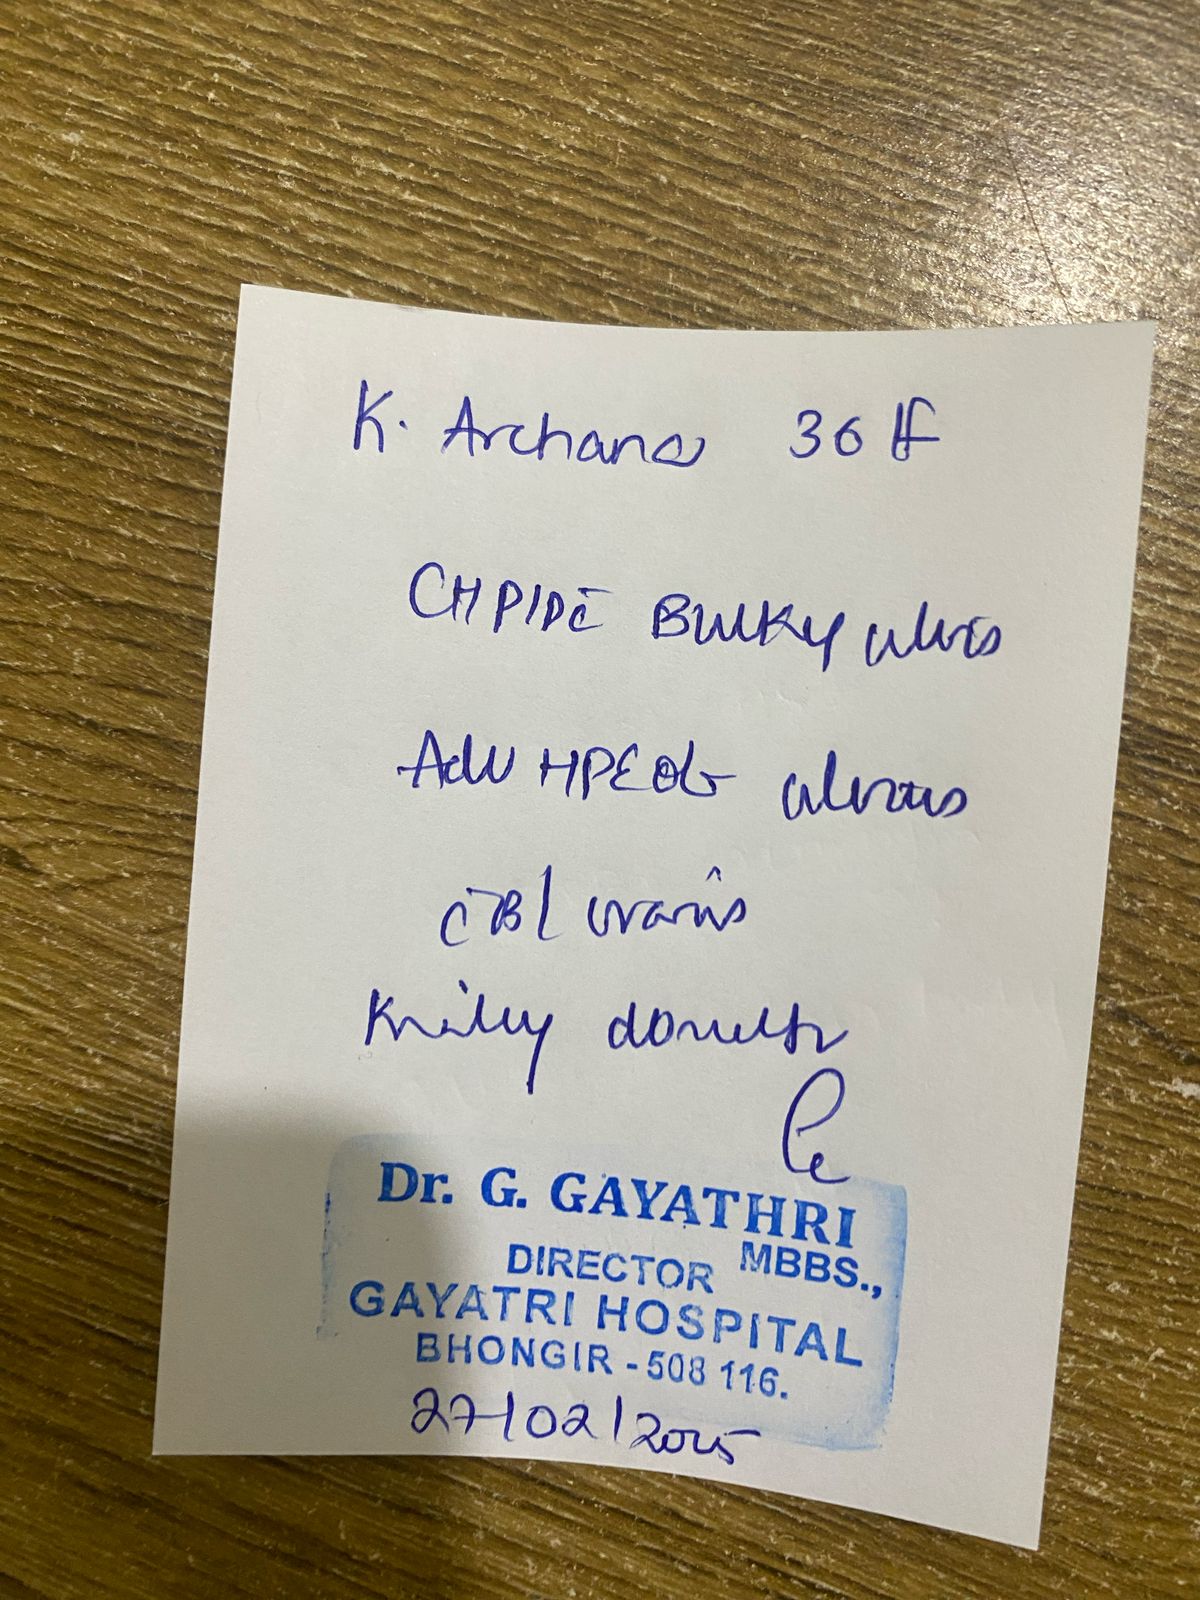 K. Archana 36/F
CH PID c̄ Bulky uterus
Adv HPE of uterus
c̄ B/L ovaries
Kindly do needful
Dr. G. GAYATHRI
MBBS.,
DIRECTOR
GAYATRI HOSPITAL
BHONGIR - 508 116.
27/02/2025